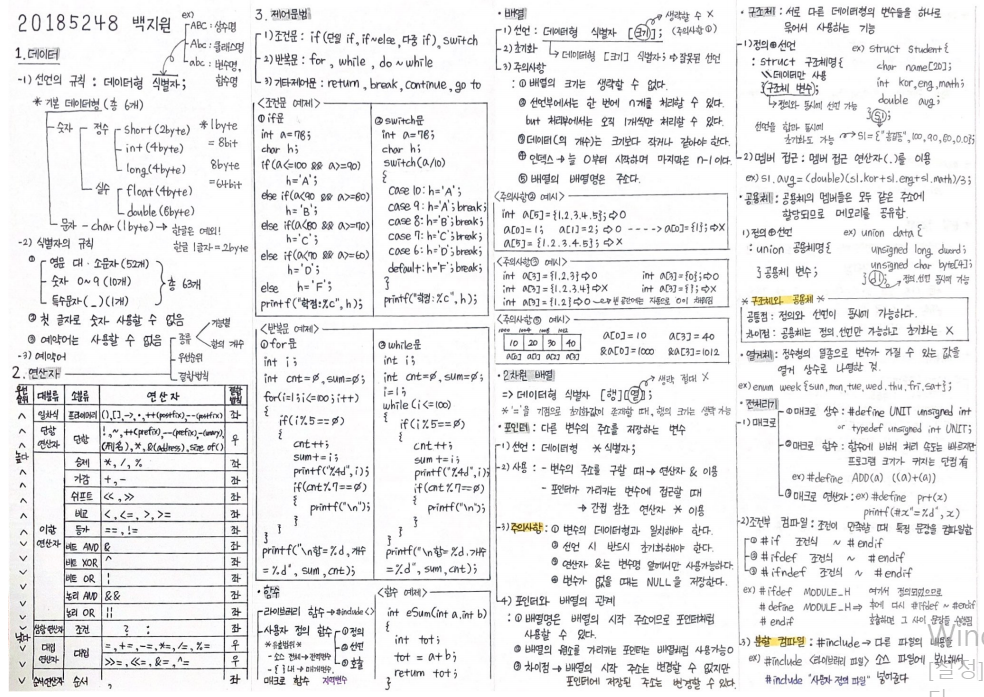 20185248 백지원
ex)
ABC : 상수명
Abc : 클래스명
abc : 변수명, 함수명
1. 데이터
-1) 선언의 규칙 : 데이터형 식별자;
* 기본 데이터형 (총 6개)
숫자
정수
short (2byte)
int (4byte)
long (4byte)
실수
float (4byte)
double (8byte)
문자 - char (1byte) → 한글은 예외!
한글 1글자 = 2byte
* 1byte = 8bit
8byte = 64bit
-2) 식별자의 규칙
① 영문 대·소문자 (52개)
숫자 0~9 (10개)
특수문자 ( _ ) (1개)
총 63개
② 첫 글자로 숫자 사용할 수 없음
③ 예약어는 사용할 수 없음
-3) 예약어
종류
기능별
항의 개수
우선순위
결합방식
2. 연산자
우선순위 대분류 소분류 연산자 결합방법
높다
낮다
일차식 프라이머리 (), [], ->, ., ++(postfix), --(postfix) 좌
단항 연산자 단항 !, ~, ++(prefix), --(prefix), -(unary), *, &(address), size of() 우
이항 연산자
승제 *, /, % 좌
가감 +, - 좌
쉬프트 <<, >> 좌
비교 <, <=, >, >= 좌
등가 ==, != 좌
비트 AND & 좌
비트 XOR ^ 좌
비트 OR ¦ 좌
논리 AND && 좌
논리 OR ¦¦ 좌
삼항연산자 조건 ? : 좌
대입 연산자 대입 =, +=, -=, *=, /=, %= 우
>>=, <<=, &=, ^= 좌
순서연산자 순서 , 좌
3. 제어문법
-1) 조건문 : if (단일 if, if~else, 다중 if), switch
-2) 반복문 : for, while, do ~ while
-3) 기타제어문 : return, break, continue, go to
<조건문 예제>
① if문
int a=78;
char h;
if(a<=100 && a>=90)
h='A';
else if(a<90 && a>=80)
h='B';
else if(a<80 && a>=70)
h='C';
else if(a<70 && a>=60)
h='D';
else h='F';
printf("학점:%c", h);
② switch문
int a=78;
char h;
switch(a/10)
{
case 10: h='A';
case 9: h='A';break;
case 8: h='B';break;
case 7: h='C';break;
case 6: h='D';break;
default: h='F';break;
}
printf("학점:%c", h);
<반복문 예제>
① for문
int i;
int cnt=0, sum=0;
for(i=1;i<=100;i++)
{
if(i%5==0)
{
cnt++;
sum+=i;
printf("%4d", i);
if(cnt%7==0)
{
printf("\n");
}
}
}
printf("\n합=%d, 개수
=%d", sum, cnt);
② while문
int i;
int cnt=0, sum=0;
i=1;
while (i<=100)
{
if(i%5==0)
{
cnt++;
sum+=i;
printf("%4d", i);
if(cnt%7==0)
{
printf("\n");
}
}
}
printf("\n합=%d, 개수
=%d", sum, cnt);
• 함수
라이브러리 함수 → #include<>
사용자 정의 함수
① 정의
② 선언
③ 호출
- 소스 전체 → 전역변수
매크로 함수
지역변수
<함수 예제>
int eSum(int a, int b)
{
int tot;
tot = a+b;
return tot;
}
• 배열
-1) 선언 : 데이터형 식별자 [크기]; (주의사항 ①)
생략할 수 X
-2) 초기화
데이터형 [크기] 식별자; ⇒ 잘못된 선언
-3) 주의사항
① 배열의 크기는 생략할 수 없다.
② 선언부에서는 한 번에 n개를 처리할 수 있다.
but 처리부에서는 오직 1개씩만 처리할 수 있다.
③ 데이터(의 개수)는 크기보다 작거나 같아야 한다.
④ 인덱스 → 늘 0부터 시작하며 마지막은 n-1이다.
⑤ 배열의 배열명은 주소다.
<주의사항② 예시>
int a[5]={1,2,3,4,5}; ⇒ O
a[0]=1; a[1]=2; ⇒ O ----> a[0]={1}; ⇒ X
a[5]={1,2,3,4,5}; ⇒ X
<주의사항③ 예시>
int a[3]={1,2,3} ⇒ O int a[3]={0}; ⇒ O
int a[3]={1,2,3,4} ⇒ X int a[3]={}; ⇒ X
int a[3]={1,2} ⇒ O
<주의사항⑤ 예시>
1000 1004 1008 1012
10 20 30 40
a[0] a[1] a[2] a[3]
a[0]=10 a[3]=40
&a[0]=1000 &a[3]=1012
• 2차원 배열
=> 데이터형 식별자 [행][열];
생략 절대 X
* '='을 기점으로 초기화값이 존재할 때, 행의 크기는 생략 가능
• 포인터 : 다른 변수의 주소를 저장하는 변수
-1) 선언 : 데이터형 *식별자;
-2) 사용 : - 변수의 주소를 구할 때 → 연산자 & 이용
- 포인터가 가리키는 변수에 접근할 때
→ 간접 참조 연산자 * 이용
-3) 주의사항 : ① 변수의 데이터형과 일치해야 한다.
② 선언 시 반드시 초기화해야 한다.
③ 연산자 &는 변수명 앞에서만 사용가능하다.
④ 변수가 없을 때는 NULL을 저장한다.
-4) 포인터와 배열의 관계
① 배열명은 배열의 시작 주소이므로 포인터처럼
사용할 수 있다.
② 배열의 원소를 가리키는 포인터는 배열처럼 사용가능
③ 차이점 → 배열의 시작 주소는 변경할 수 없지만
포인터에 저장된 주소는 변경할 수 있다.
• 구조체 : 서로 다른 데이터형의 변수들을 하나로
묶어서 사용하는 기능
-1) 정의 ⊕ 선언
: struct 구조체명 {
데이터만 사용
} 구조체 변수;
정의와 동시에 선언 가능
ex) struct Student{
char name[20];
int kor, eng, math;
double avg;
} S1;
선언을 함과 동시에
초기화도 가능 → S1={"홍길동", 100, 90, 80, 0.0};
-2) 멤버 접근 : 멤버 접근 연산자(.)를 이용
ex) S1.avg=(double)(S1.kor+S1.eng+S1.math)/3;
• 공용체 : 공용체의 멤버들은 모두 같은 주소에
할당되므로 메모리를 공유함.
-1) 정의 ⊕ 선언
: union 공용체명 {
} 공용체 변수;
ex) union data {
unsigned long dword;
unsigned char byte[4];
} d1; → 정의.선언 동시에 가능
* 구조체와 공용체 *
공통점 : 정의와 선언이 동시에 가능하다.
차이점 : 공용체는 정의.선언만 가능하고 초기화는 X
• 열거체 : 정수형의 일종으로 변수가 가질 수 있는 값을
열거 상수로 나열한 것.
ex) enum week {sun, mon, tue, wed, thu, fri, sat};
• 전처리기
-1) 매크로
① 매크로 상수 : #define UNIT unsigned int
or typedef unsigned int UNIT;
② 매크로 함수 : 함수에 비해 처리 속도는 빠르지만
프로그램 크기가 커지는 단점 有
ex) #define ADD(a) ((a)+(a))
③ 매크로 연산자 : ex) #define prt(x)
printf(#x"=%d", x)
-2) 조건부 컴파일 : 조건이 만족할 때 특정 문장을 컴파일함
① #if 조건식 ~ #endif
② #ifdef 조건식 ~ #endif
③ #ifndef 조건식 ~ #endif
ex) #ifdef MODULE_H 여기서 정의되었으므로
#define MODULE_H → 후에 다시 #ifdef ~ #endif
#endif
-3) 분할 컴파일 : #include → 다른 파일의 내용을
ex) #include <라이브러리 파일> 소스 파일에
#include "사용자 정의 파일" 넣어준다
Wind
[설정]